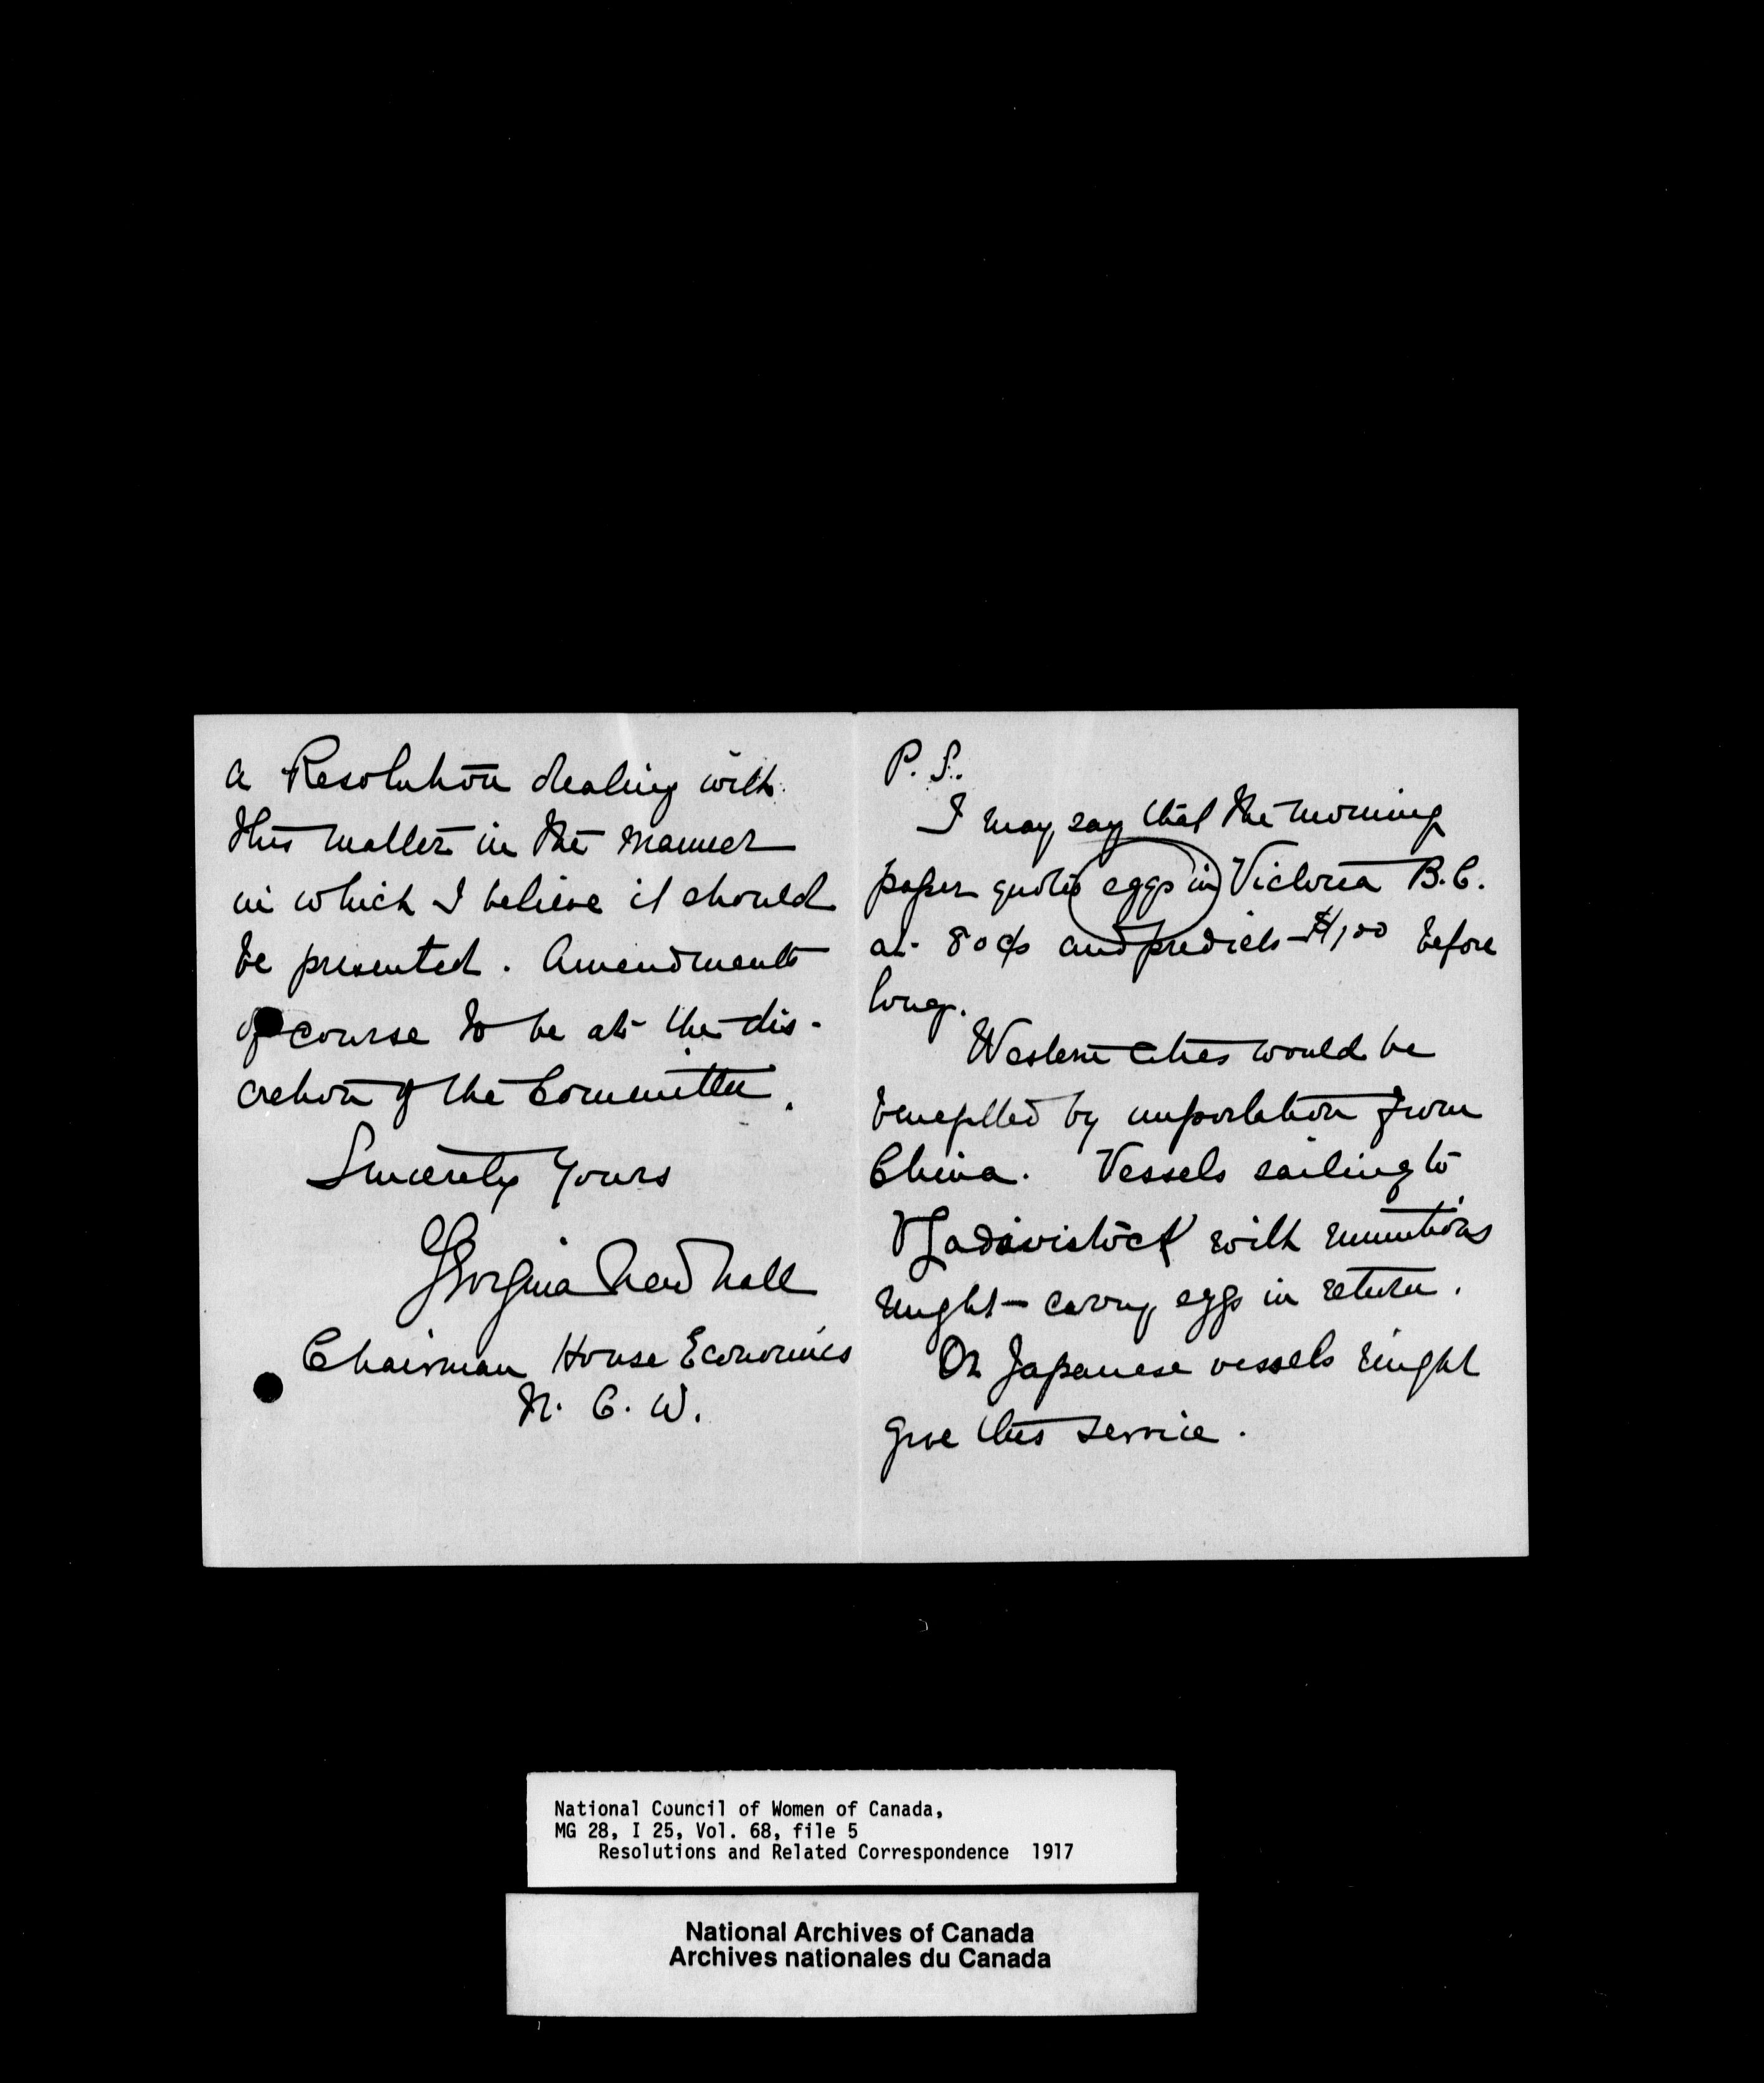 a Resolution dealing with
this matter in the manner
in which I believe it should
be presented. Amendments
of course to be at the dis-
cretion of the Committee.
Sincerely Yours
Georgina Newhall
Chairman House Economics
N. C. W.
P. S.
I may say that the morning
paper quotes eggs in Victoria B.C.
at 80¢ and predicts $1.00 before
long.
Western cities would be
benefitted by importation from
China. Vessels sailing to
Vladivistock with munitions
might carry eggs in return.
Or Japanese vessels might
give this service.
National Council of Women of Canada,
MG 28, I 25, Vol. 68, file 5
Resolutions and Related Correspondence 1917
National Archives of Canada
Archives nationales du Canada